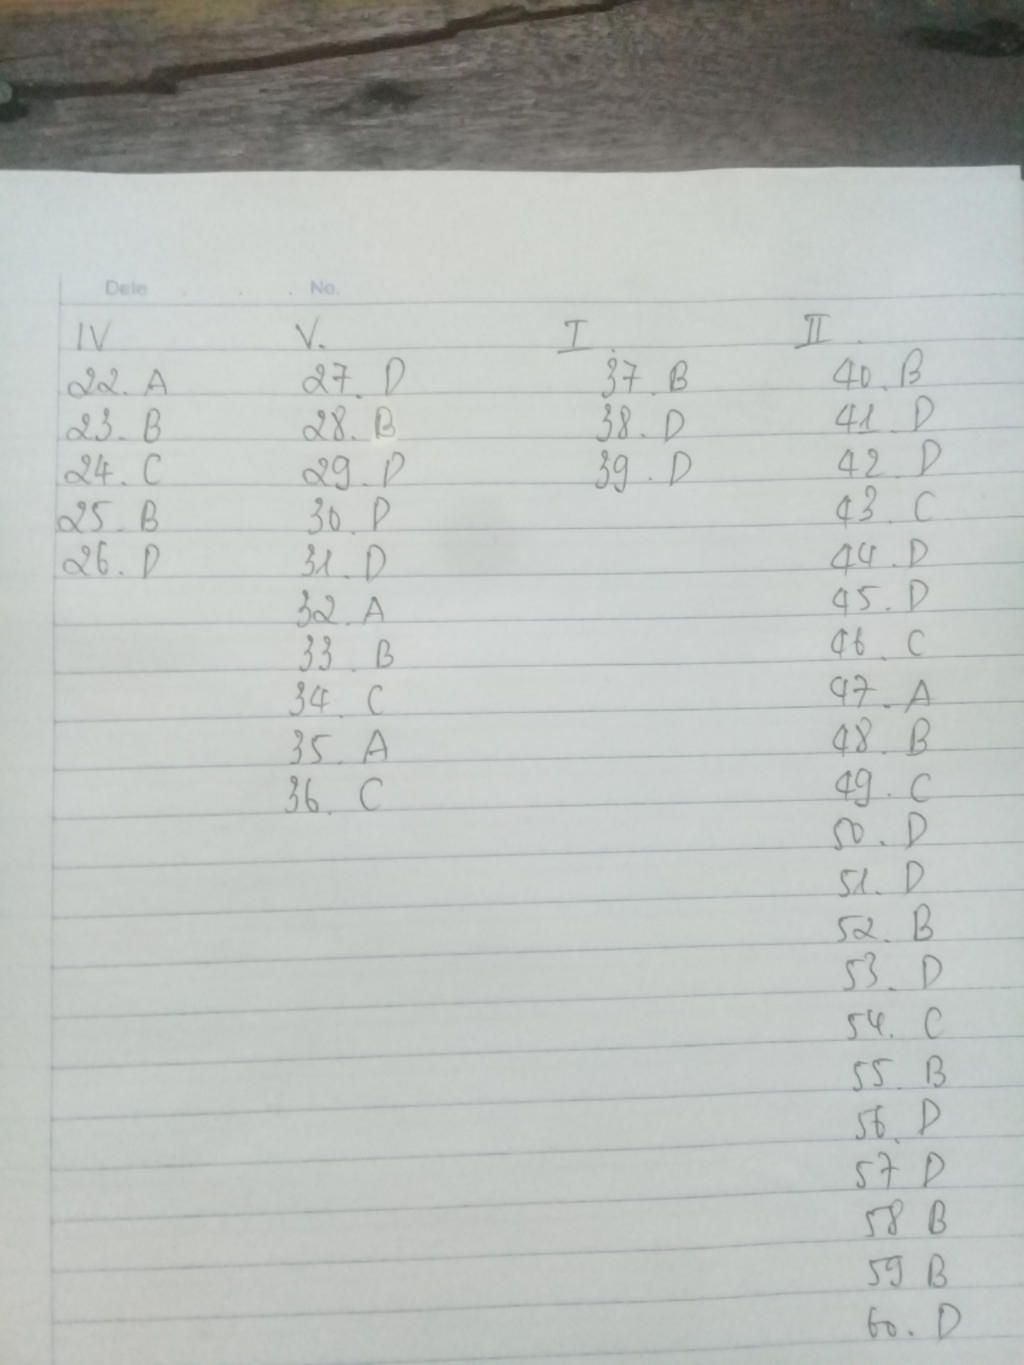 Date No.
IV V. I. II.
22. A 27. D 37. B 40. B
23. B 28. B 38. D 41. D
24. C 29. D 39. D 42. D
25. B 30. D 43. C
26. D 31. D 44. D
32. A 45. D
33. B 46. C
34. C 47. A
35. A 48. B
36. C 49. C
50. D
51. D
52. B
53. D
54. C
55. B
56. D
57 D
58 B
59 B
60. D